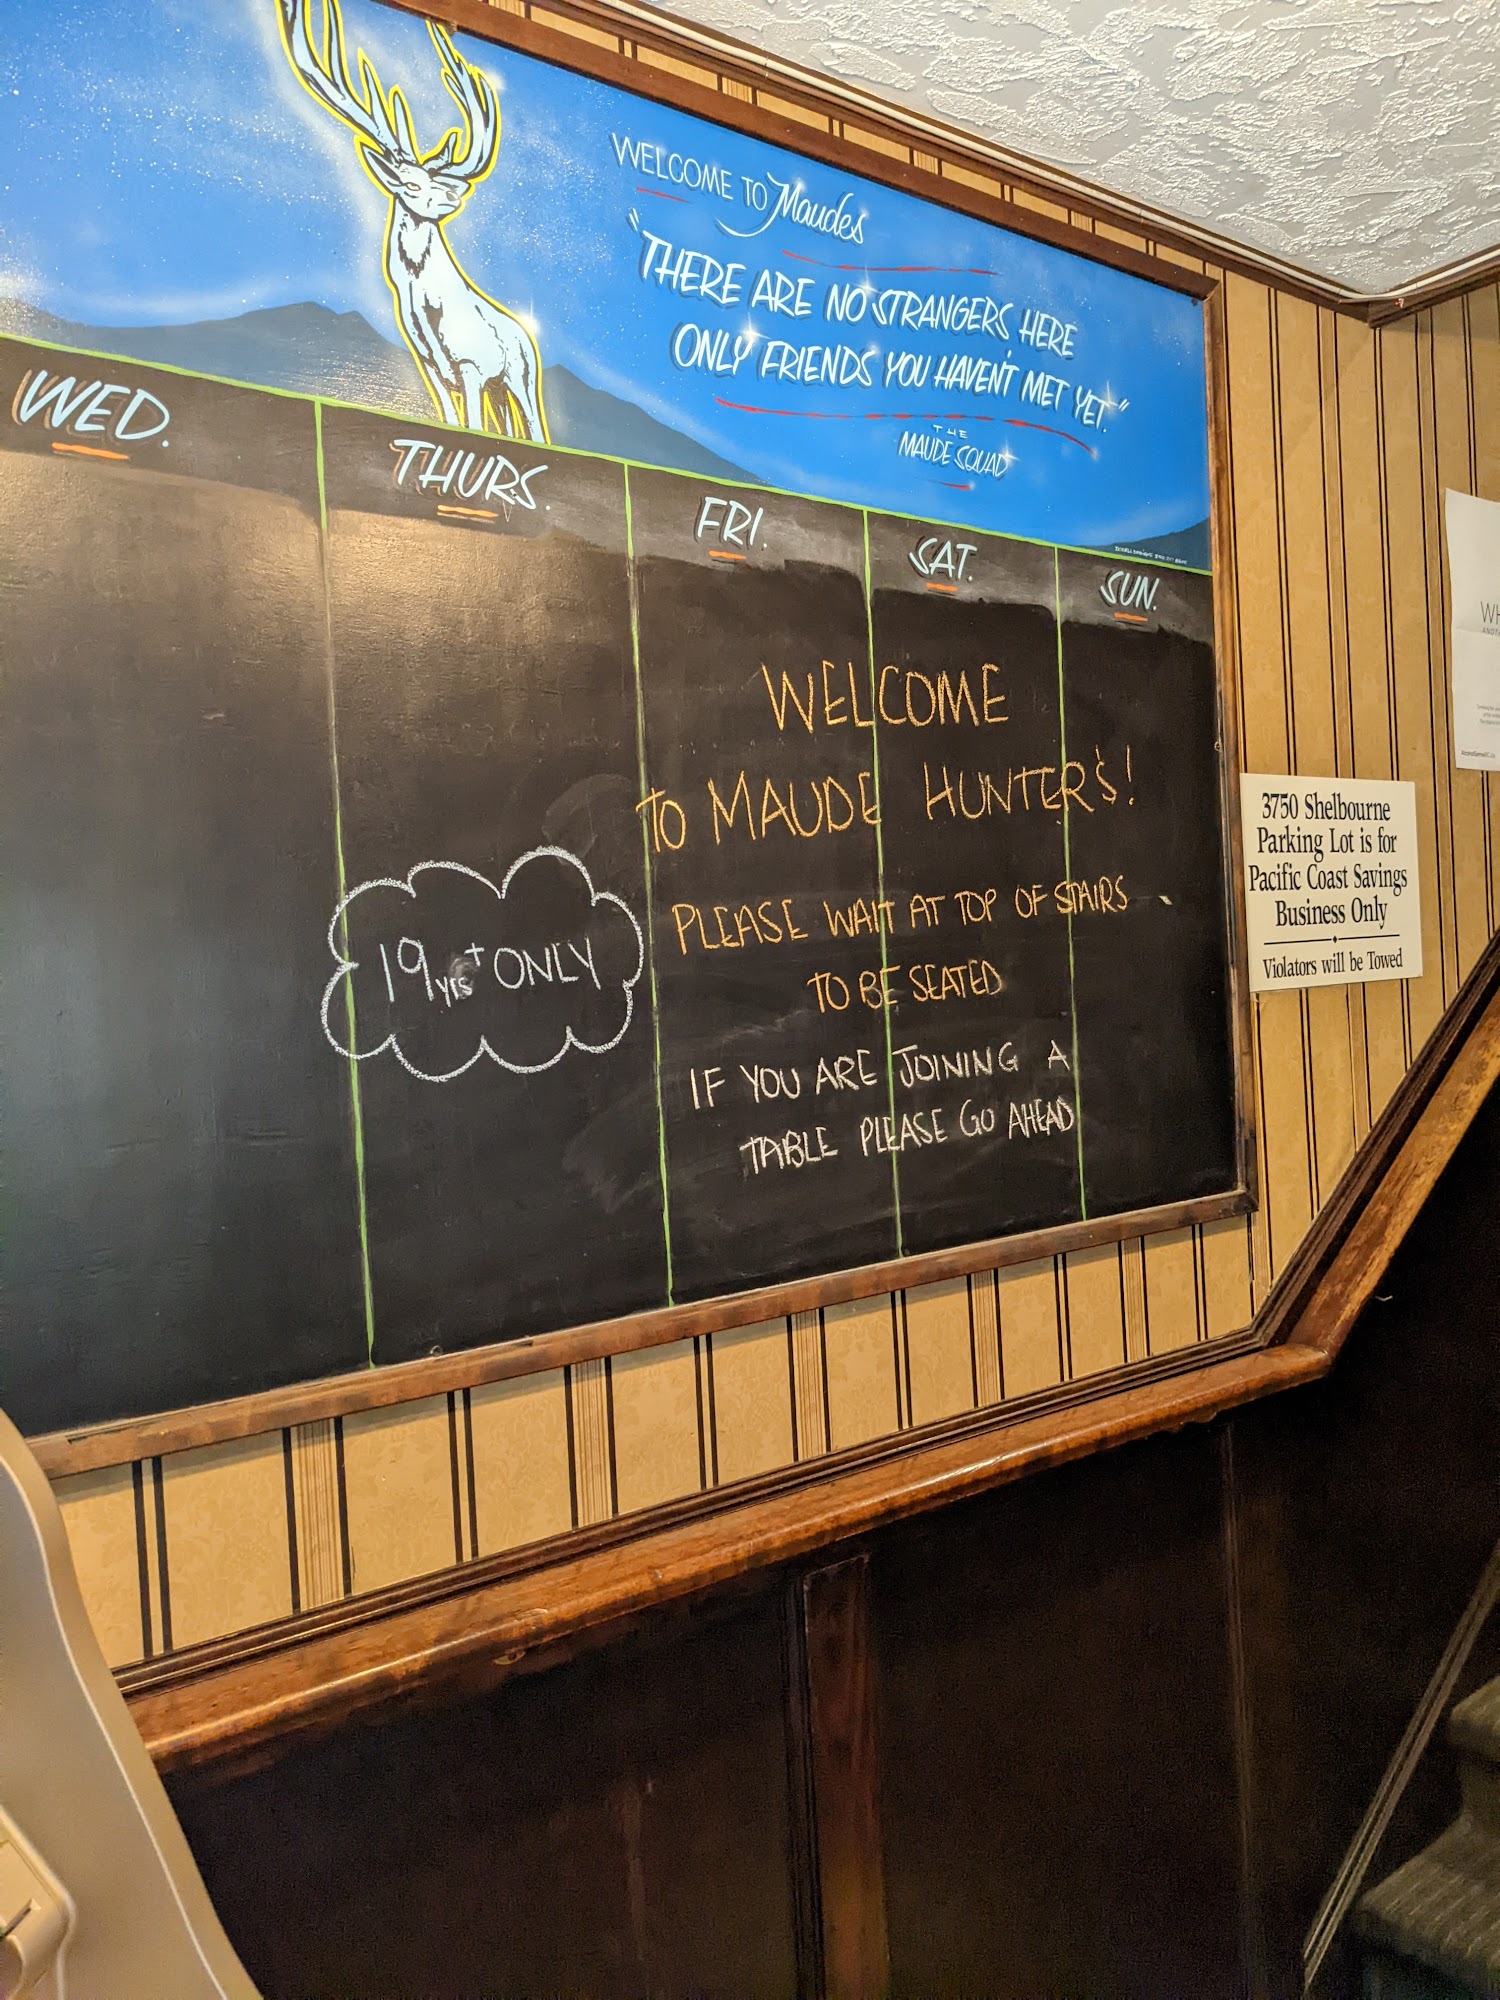 WELCOME TO Maudes
"THERE ARE NO STRANGERS HERE
ONLY FRIENDS YOU HAVEN'T MET YET."
THE
MAUDE SQUAD
WED.
THURS.
FRI.
SAT.
SUN.
WELCOME
TO MAUDE HUNTER'S!
PLEASE WAIT AT TOP OF STAIRS
TO BE SEATED
IF YOU ARE JOINING A
TABLE PLEASE GO AHEAD
19yrs+ ONLY
3750 Shelbourne
Parking Lot is for
Pacific Coast Savings
Business Only
Violators will be Towed